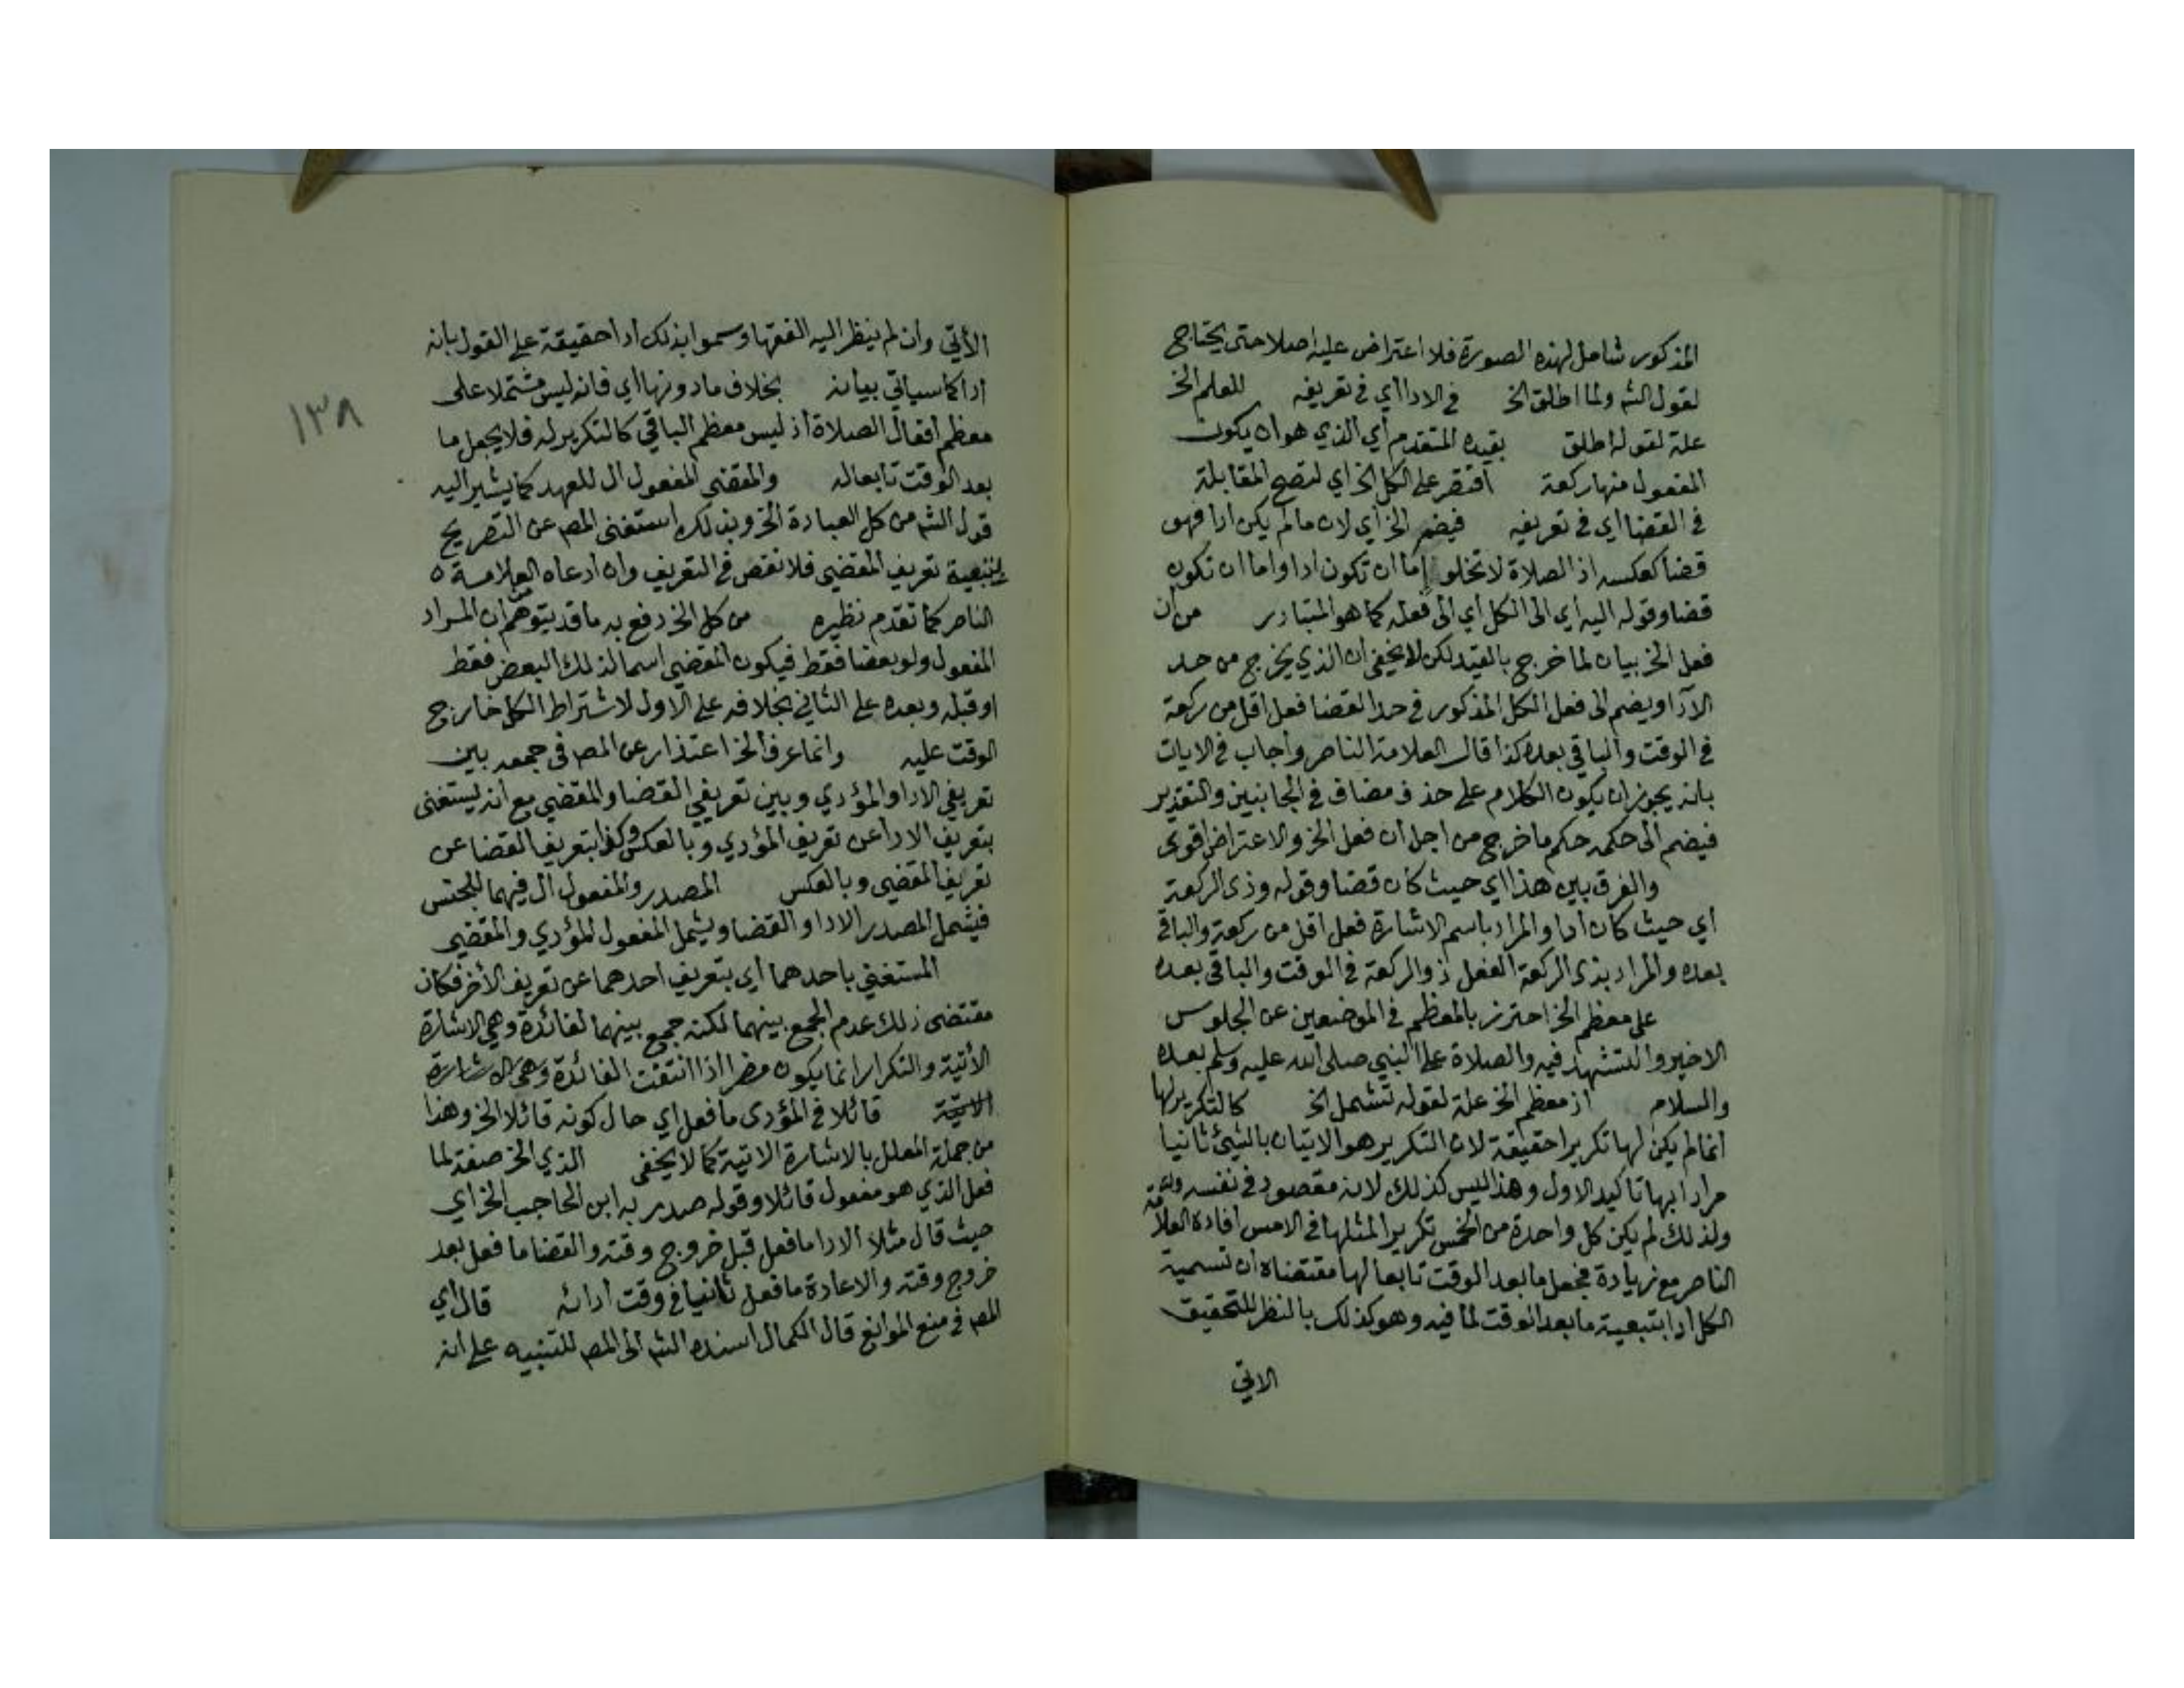 المذكور شامل لهذه الصورة فلا اعتراض عليه اصلا حتى يحتاج
لقول الشم ولما اطلق الخ في الادا اي في تعريفه للعلم الخ
علة لقوله اطلق بقيده المتقدم أي الذي هو ان يكون
المفعول منها ركعة اقتصر على الكل الخ اي لتصح المقابلة
في القضا اي في تعريفه فيضم الخ أي لان ما لم يكن ادا فهو
قضا كعكسه اذ الصلاة لا تخلو إما ان تكون ادا واما ان تكون
قضا وقوله اليه أي الى الكل أي الى فعله كما هو المتبادر من أن
فعل الخ بيان لما خرج بالقيد لكن لا يخفى ان الذي يخرج من حد
الآدا ويضم الى فعل الكل المذكور في حد القضا فعل اقل من ركعة
في الوقت والباقي بعده كذا قال العلامة الناصر واجاب في الايات
بانه يجوز ان يكون الكلام على حذف مضاف في الجانبين والتقدير
فيضم الى حكمه حكم ما خرج من اجل ان فعل الخ والاعتراض اقوى
والفرق بين هذا اي حيث كان قضا وقوله وذي الركعة
أي حيث كان ادا والمراد باسم الاشارة فعل اقل من ركعة والباقي
بعده والمراد بذي الركعة الفعل ذو الركعة في الوقت والباقي بعده
على معظم الخ احترز بالمعظم في الموضعين عن الجلوس
الاخير والتشهد فيه والصلاة على النبي صلى الله عليه وسلم بعده
والسلام اذ معظم الخ علة لقوله تشمل الخ كالتكرير لها
انما لم يكن لها تكريرا حقيقة لان التكرير هو الاتيان بالشيئ ثانيا
مرادا بها تاكيد الاول وهذا ليس كذلك لانه مقصود في نفسه
ولذلك لم يكن كل واحدة من الخمس تكريرا لمثلها في الامس افاده العلامة
الناصر مع زيادة فجعل ما بعد الوقت تابعا لها مقتضاه ان تسمية
الكل ادا بتبعية ما بعد الوقت لما فيه وهو كذلك بالنظر للتحقيق
الاتي
١٣٨
الأتي وان لم ينظر اليه الفقها وسموا بذلك ادا حقيقة على القول بانه
ادا كما سياتي بيانه بخلاف ما دونها اي فانه ليس مشتملا على
معظم أفعال الصلاة اذ ليس معظم الباقي كالتكرير له فلا يجعل ما
بعد الوقت تابعا له والمقضي المفعول ال للعهد كما يشير اليه
قول الشم من كل العبادة الخ وبذلك استغنى المص عن التصريح
بتبعية تعريف المقضي فلا نقص في التعريف وان ادعاه العلامة ٥
الناصر كما تقدم نظيره من كل الخ دفع به ما قد يتوهم ان المراد
المفعول ولو بعضا فقط فيكون المقضي اسما لذلك البعض فقط
او قبله وبعده على الثاني بخلافه على الأول لاشتراط الكل خارج
الوقت عليه وانما عرف الخ اعتذار عن المص في جمعه بين
تعريفي الادا والمؤدي وبين تعريفي القضا والمقضي مع انه يستغنى
بتعريف الادا عن تعريف المؤدي وبالعكس وكذا بتعريف القضا عن
تعريف المقضي وبالعكس المصدر والمفعول ال فيهما للجنس
فيشمل المصدر الادا والقضا ويشمل المفعول المؤدي والمقضي
المستغني باحدهما أي بتعريف احدهما عن تعريف الأخر فكان
مقتضى ذلك عدم الجمع بينهما لكنه جمع بينهما لفائدة وهي الاشارة
الأتية والتكرار انما يكون مضرا اذا انتفت الفائدة وهي الاشارة
الاتية قائلا في المؤدى ما فعل اي حال كونه قائلا الخ وهذا
من جملة المعلل بالاشارة الاتية كما لا يخفى الذي الخ صفة لما
فعل الذي هو مفعول قائلا وقوله صدر به ابن الحاجب الخ اي
حيث قال مثلا الادا ما فعل قبل خروج وقته والقضا ما فعل بعد
خروج وقته والاعادة ما فعل ثانيا في وقت ادائه قال اي
المص في منع الموانع قال الكمال اسنده الشم الى المص للتنبيه على انه